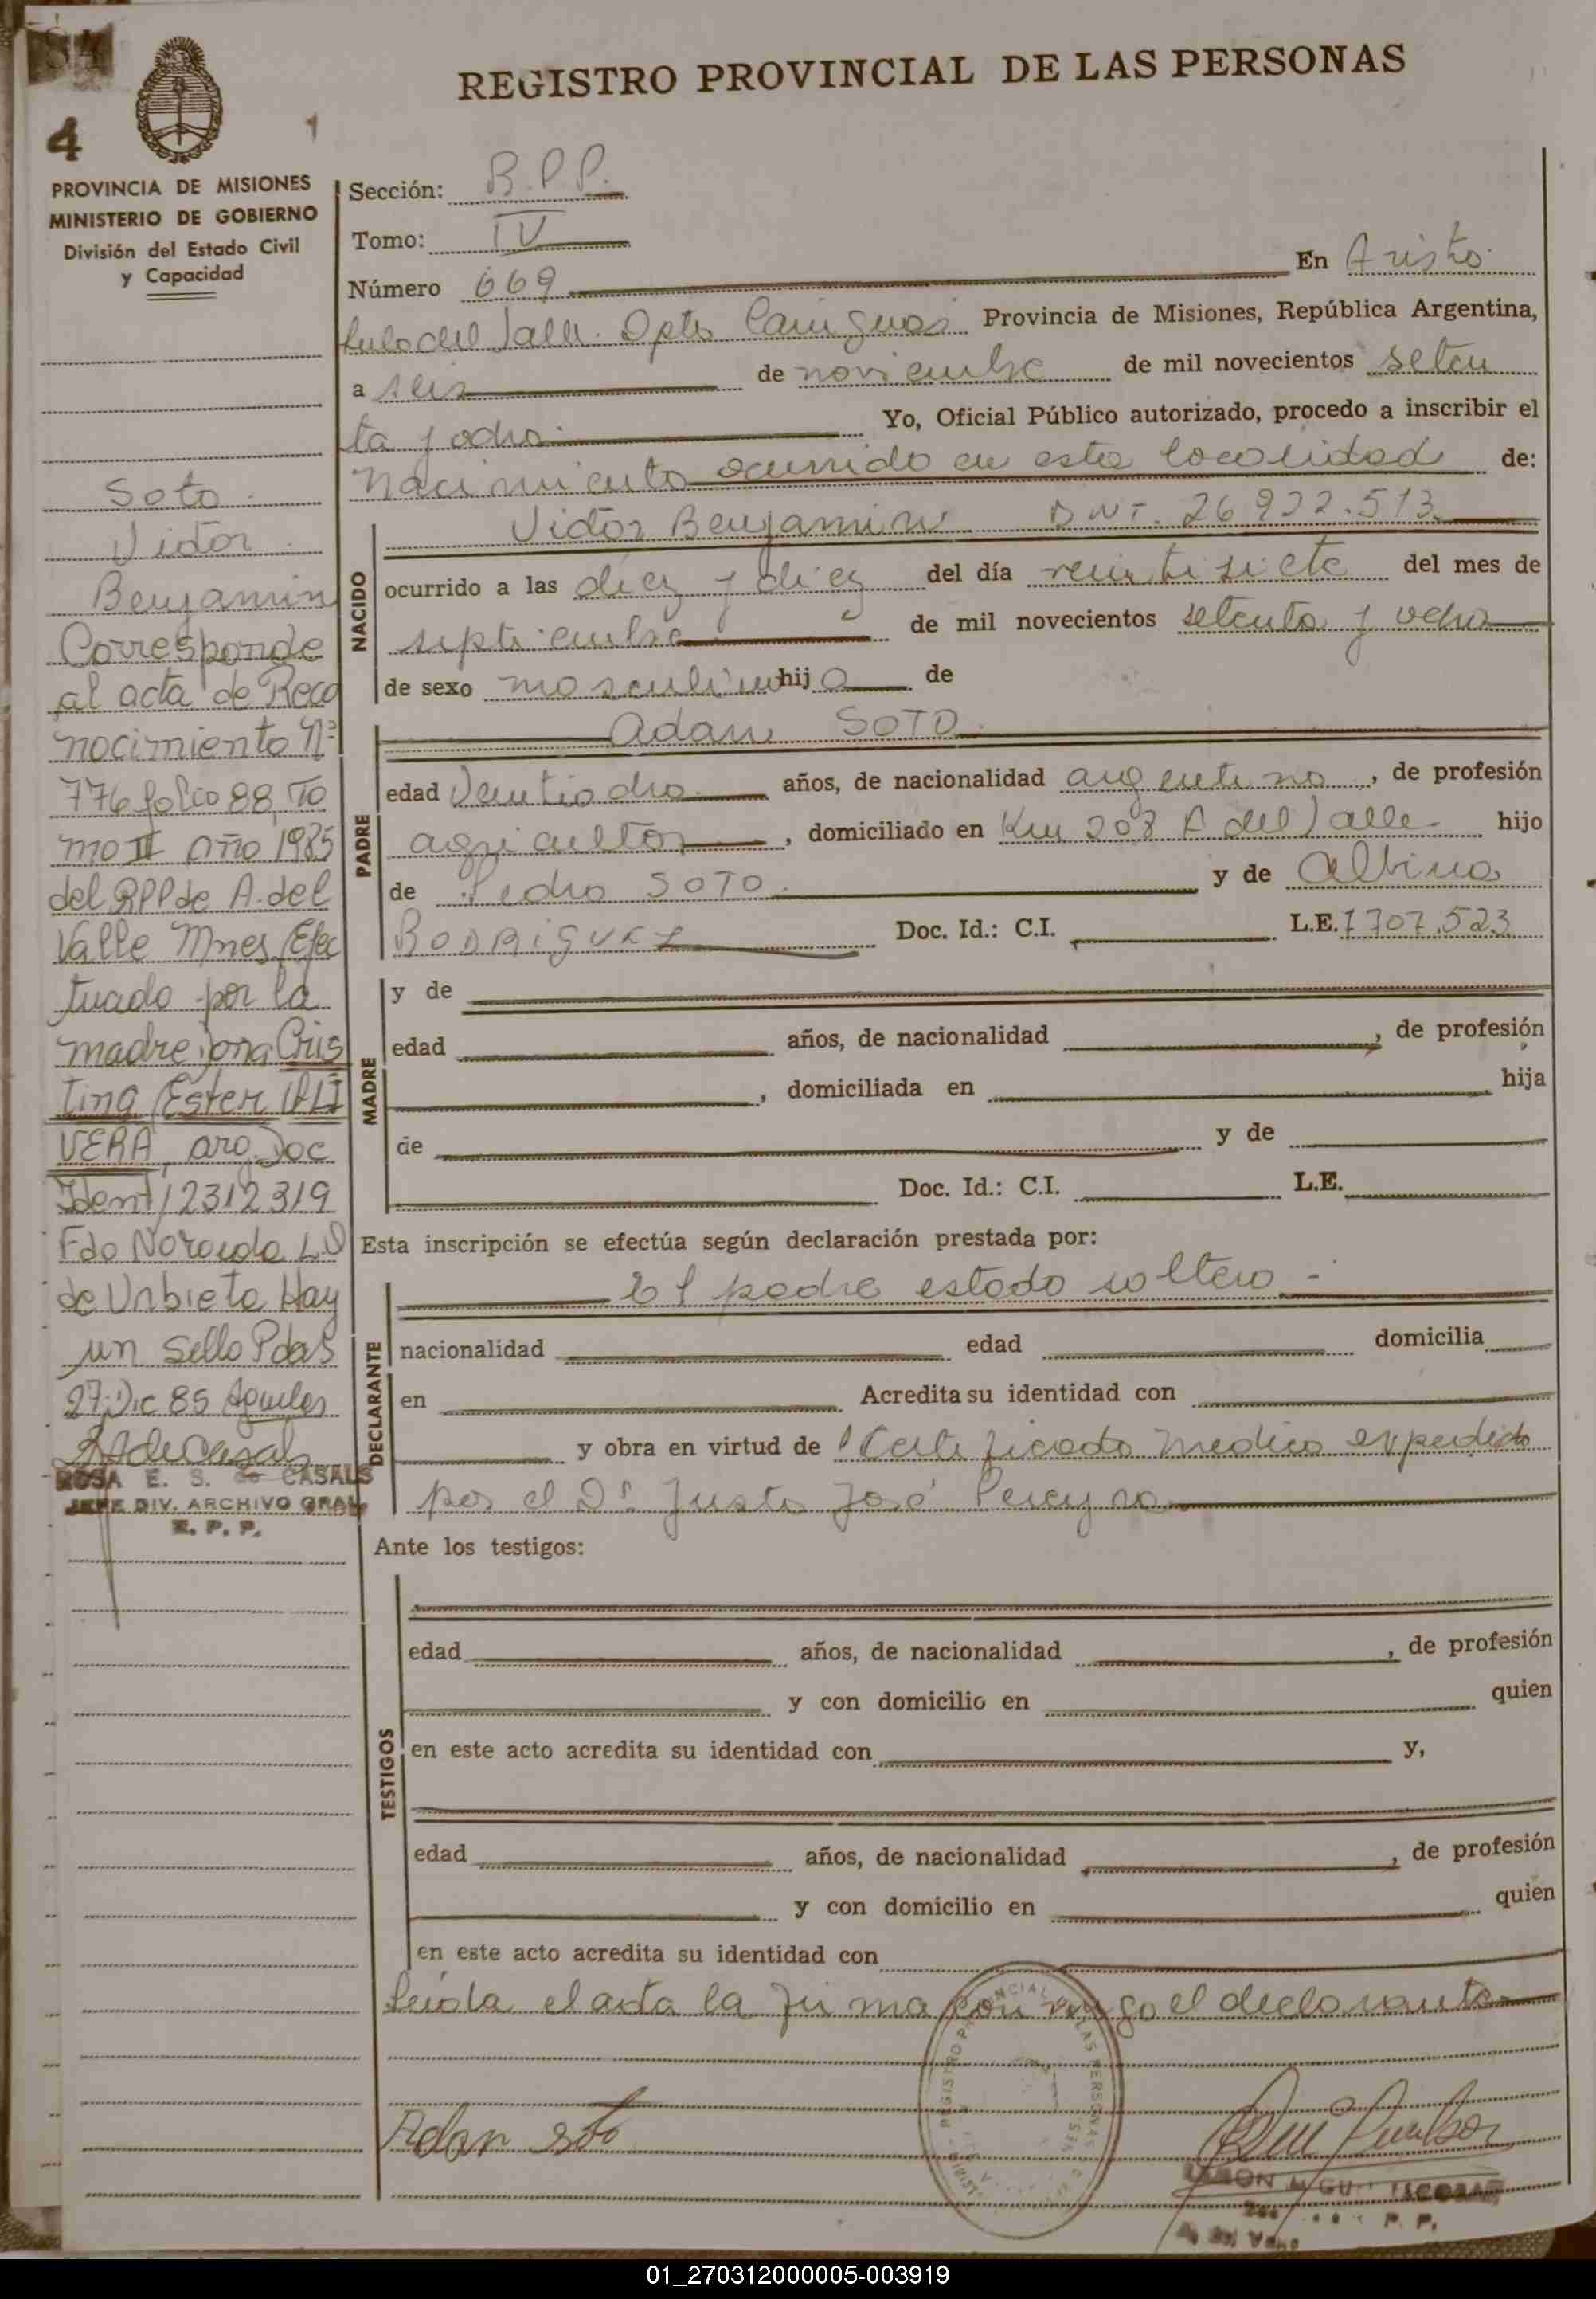 REGISTRO PROVINCIAL DE LAS PERSONAS
4
PROVINCIA DE MISIONES
MINISTERIO DE GOBIERNO
División del Estado Civil
y Capacidad
Soto
Victor
Benjamin
Corresponde
al acta de Reco
nocimiento Nº
776 folio 88, To
mo II año 1985
del RPP de A. del
Valle Mnes, Efec
tuado por la
madre Doña Cris
tina Ester OLI
VERA, arg. Doc
Ident 12312319
Fdo
de Urbieta Hay
un sello Pdas
27 Dic 85
ROSA E. S. de CASALS
JEFE DIV. ARCHIVO GRAL
R. P. P.
Sección: R.P.P.
Tomo: IV
Número 669 En Aristo
bulo del Valle. Dpto Cainguas Provincia de Misiones, República Argentina,
a seis de noviembre de mil novecientos seten
ta y ocho Yo, Oficial Público autorizado, procedo a inscribir el
Nacimiento ocurrido en esta localidad de:
NACIDO
Victor Benjamin DNI. 26.922.513
ocurrido a las diez y diez del día veintisiete del mes de
septiembre de mil novecientos setenta y ocho
de sexo masculino hijo de
PADRE
Adan SOTO
edad Veintiocho años, de nacionalidad argentino, de profesión
agricultor, domiciliado en Km 208 A del Valle hijo
de Pedro SOTO y de Albina
RODRIGUEZ Doc. Id.: C.I. L.E. 7707.523
MADRE
y de
edad años, de nacionalidad , de profesión
, domiciliada en hija
de y de
Doc. Id.: C.I. L.E.
Esta inscripción se efectúa según declaración prestada por:
DECLARANTE
El padre estado soltero -
nacionalidad edad domicilia
en Acredita su identidad con
y obra en virtud de Certificado medico expedido
por el Dr. Justo José Pereyra
Ante los testigos:
TESTIGOS
edad años, de nacionalidad , de profesión
y con domicilio en quien
en este acto acredita su identidad con y,
edad años, de nacionalidad , de profesión
y con domicilio en quien
en este acto acredita su identidad con
Leida el acta la firma conmigo el declarante
Adan Soto
RAMON MIGUEL ESCOBAR
01_270312000005-003919